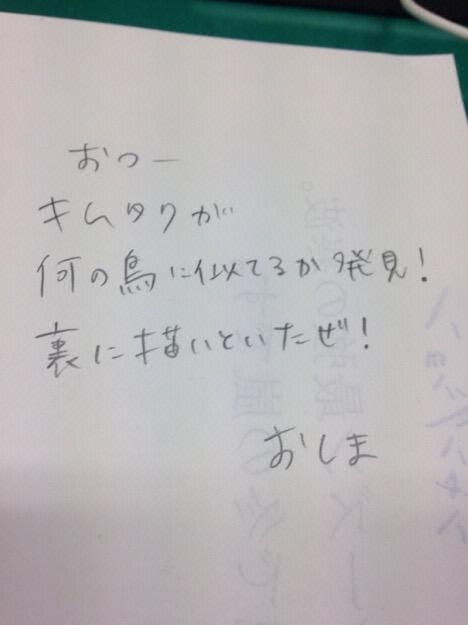 おつー
キムタクが
何の鳥に似てるか発見!
裏に描いといたぜ!
おしま